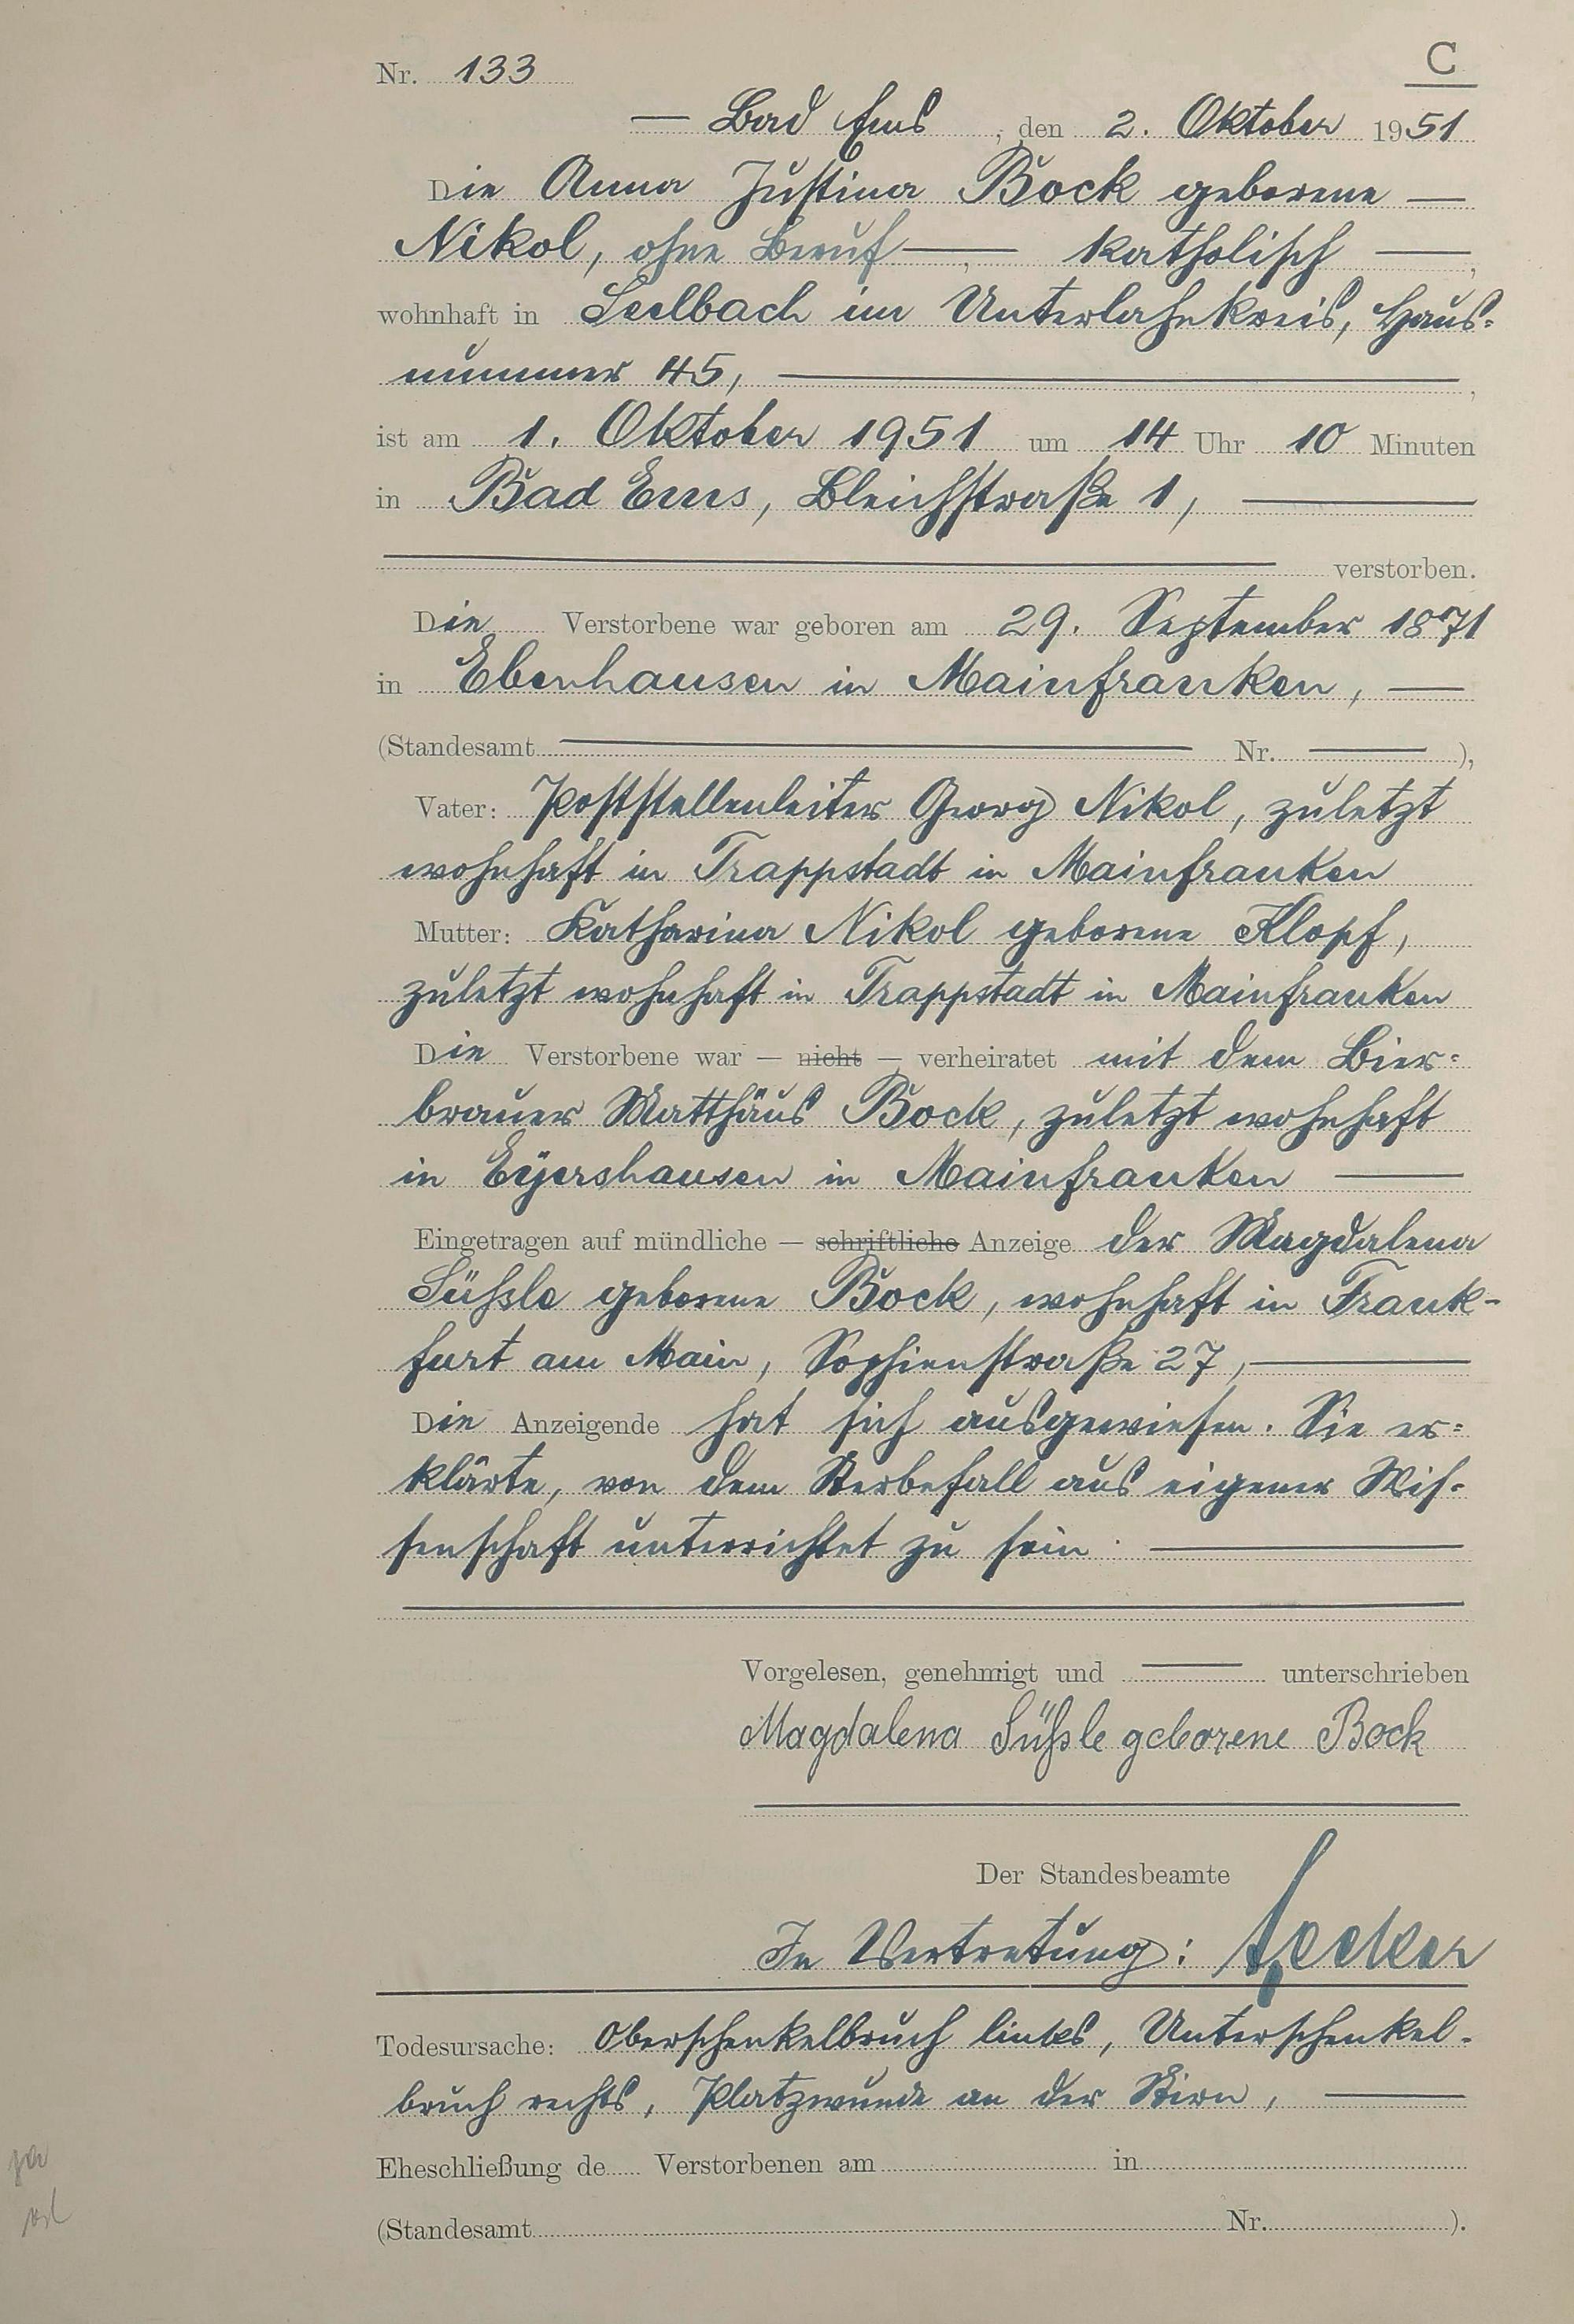 C
Nr. 133
Bad Ems, den 2. Oktober 1951
Die Anna Justina Bock geborene
Nikol, ohne Beruf, katholisch,
wohnhaft in Seelbach im Unterlahnkreis, Haus=
nummer 45,
ist am 1. Oktober 1951 um 14 Uhr 10 Minuten
in Bad Ems, Bleichstraße 1,
verstorben.
Die Verstorbene war geboren am 29. September 1871
in Ebenhausen in Mainfranken,
(Standesamt Nr. ),
Vater: Poststellenleiter Georg Nikol, zuletzt
wohnhaft in Trappstadt in Mainfranken
Mutter: Katharina Nikol geborene Klopf,
zuletzt wohnhaft in Trappstadt in Mainfranken
Die Verstorbene war — nicht — verheiratet mit dem Bier=
brauer Matthäus Bock, zuletzt wohnhaft
in Eyershausen in Mainfranken
Eingetragen auf mündliche — schriftliche Anzeige der Magdalena
Süßle geborene Bock, wohnhaft in Frank-
furt am Main, Sophienstraße 27,
Die Anzeigende hat sich ausgewiesen. Sie er=
klärte, von dem Sterbefall aus eigener Wis-
senschaft unterrichtet zu sein.
Vorgelesen, genehmigt und unterschrieben
Magdalena Süßle geborene Bock
Der Standesbeamte
In Vertretung:
Todesursache: Oberschenkelbruch links, Unterschenkel-
bruch rechts, Platzwunde an der Stirn,
Eheschließung de Verstorbenen am in
(Standesamt Nr. ).